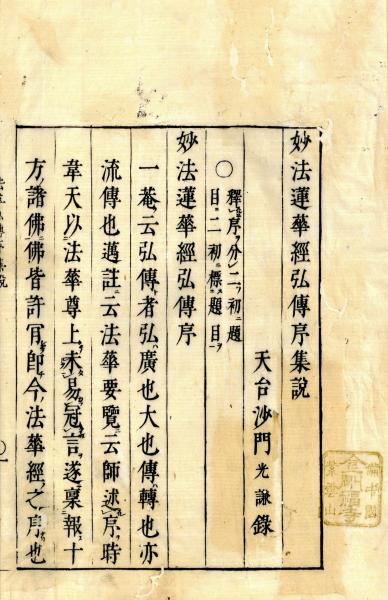 妙法蓮華經弘傳序集說
天台沙門光謙錄
○釋序分二初題
目二初標題目
妙法蓮華經弘傳序
一菴云弘傳者弘廣也大也傳轉也亦
流傳也邁註云法華要覽云師述序時
韋天以法華尊上未易冠言遂稟報十
方諸佛佛皆許可即今法華經之序也